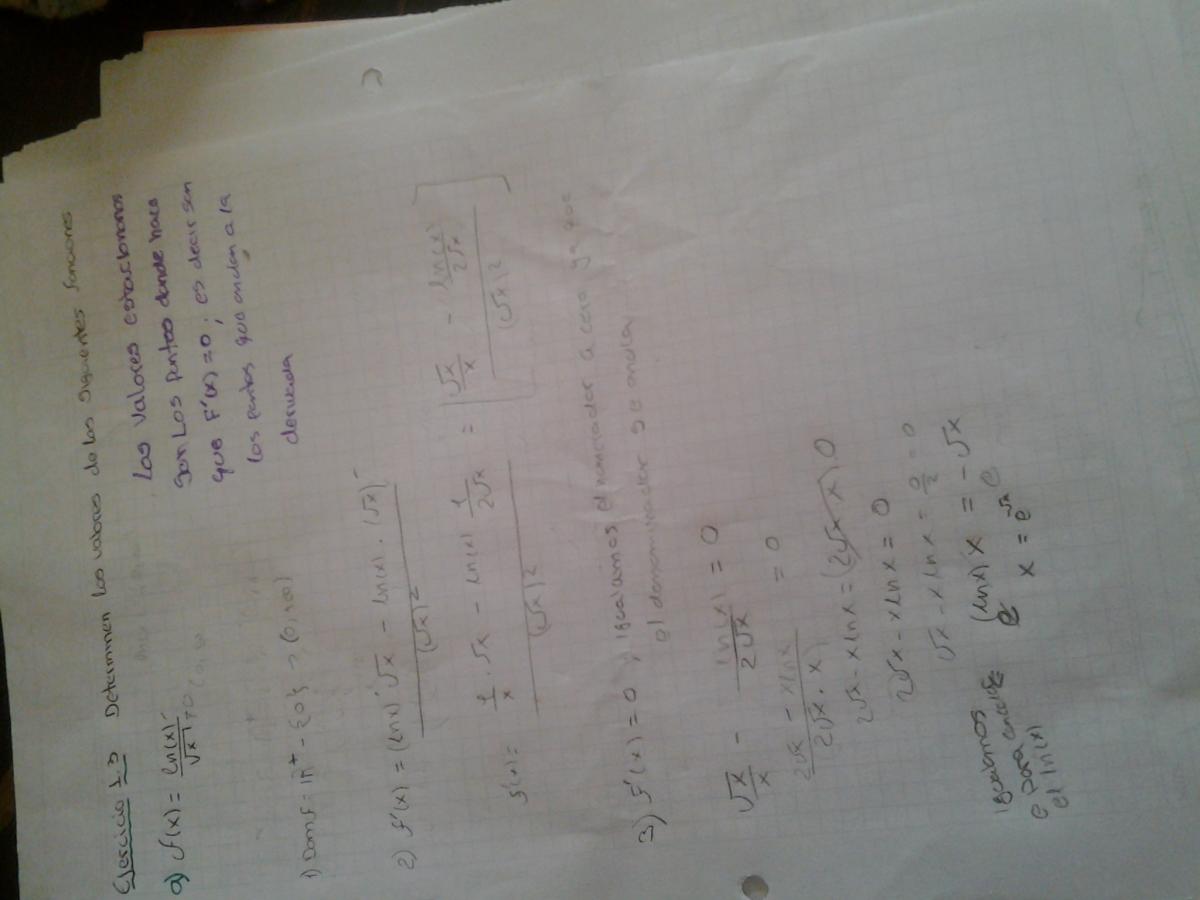 Ejercicio 1.3 Determinen los valores de las siguientes funciones
a) f(x) = ln(x) / √x ≠0
Los valores estacionarios
son Los puntos donde hace
que F'(x) = 0; es decir son
los puntos que anulan a la
derivada
1) Dom f = IR⁺ - {0} → (0, +∞)
2) f'(x) = (ln x)' √x - ln(x) · (√x)' / (√x)²
f'(x) = 1/x · √x - ln(x) 1/2√x / (√x)² = [ √x/x - ln(x)/2√x / (√x)² ]
3) f'(x) = 0, igualamos el numerador a cero ya que
el denominador se anula
√x/x - ln(x)/2√x = 0
2√x - x ln x / 2√x · x = 0
2√x - x ln x = (2√x x) 0
2√x - x ln x = 0
√x - x ln x = 0/2 = 0
igualamos
e para
el ln(x)
(ln x) x = -√x
x = e^-√x